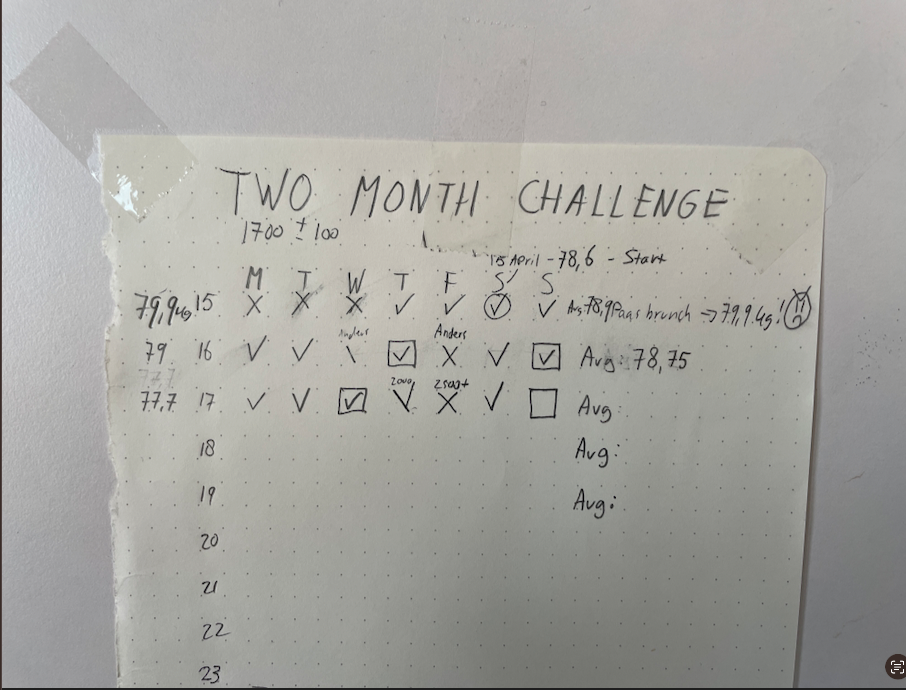 TWO MONTH CHALLENGE
1700 ± 100
15 April - 78,6 - Start
M T W T F S S
79,9kg 15 X X X ✓ ✓ ✓ ✓ Avg: 78,9 Paas brunch → 79,9 kg!
Anders Anders
79 16 ✓ ✓ \ ☑ X ✓ ☑ Avg: 78,75
77,7
2000 2500+
77,7 17 ✓ ✓ ☑ ✓ X ✓ ☐ Avg:
18 Avg:
19 Avg:
20
21
22
23